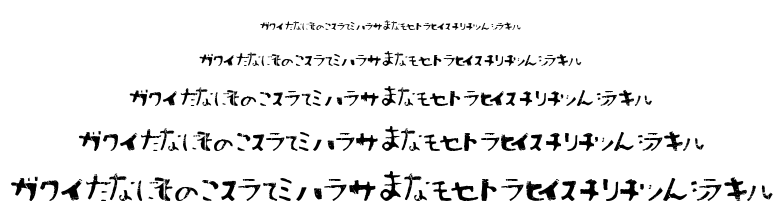 ガワイたなにものこスラてミハラサまなモセトラヒイスチリチッんシラキル
ガワイたなにものこスラてミハラサまなモセトラヒイスチリチッんシラキル
ガワイたなにものこスラてミハラサまなモセトラヒイスチリチッんシラキル
ガワイたなにものこスラてミハラサまなモセトラヒイスチリチッんシラキル
ガワイたなにものこスラてミハラサまなモセトラヒイスチリチッんシラキル